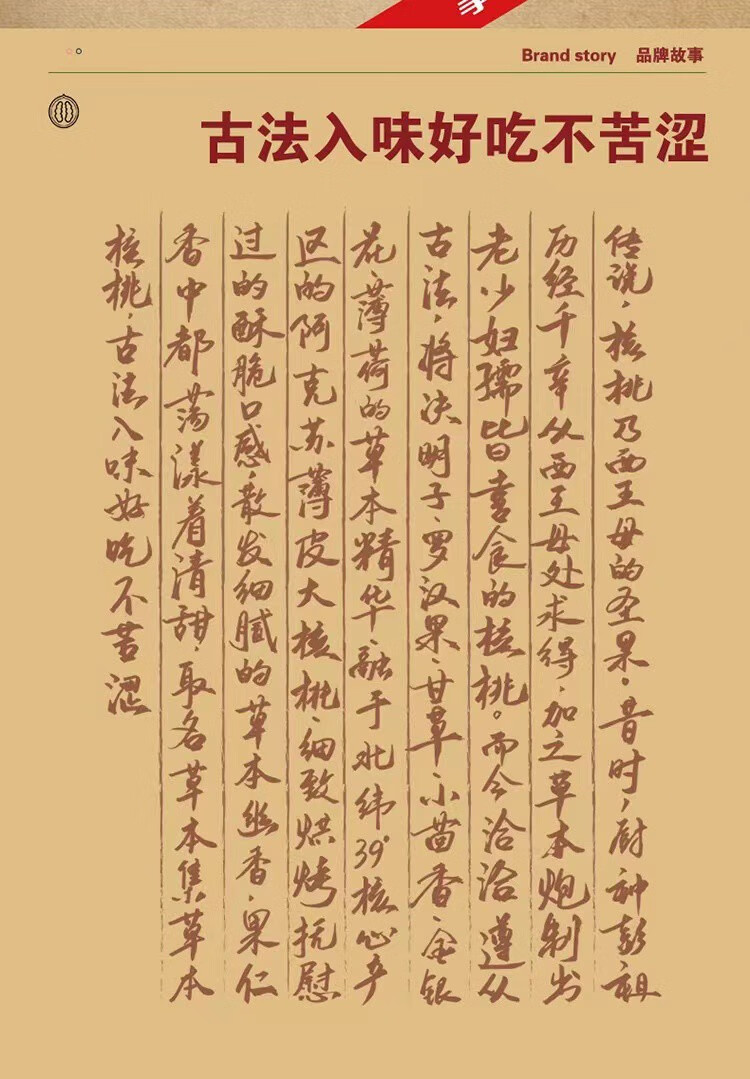 Brand story 品牌故事
古法入味好吃不苦涩
传说,核桃乃西王母的圣果。昔时,厨神彭祖
历经千辛从西王母处求得,加之草本炮制出
老少妇孺皆喜食的核桃。而今洽洽遵从
古法,将决明子、罗汉果、甘草、小茴香、金银
花、薄荷的草本精华,融于北纬39°核心产
区的阿克苏薄皮大核桃、细致烘烤抚慰
过的酥脆口感,散发细腻的草本幽香,果仁
香中都荡漾着清甜,取名草本集草本
核桃,古法入味好吃不苦涩